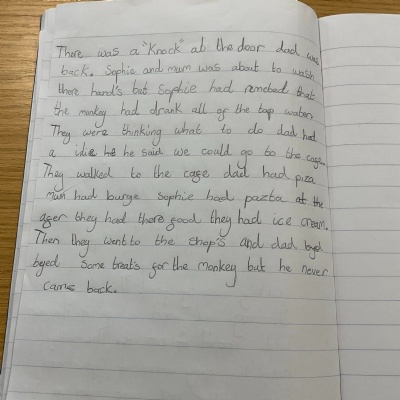 There was a "Knock" at the door dad was
back. Sophie and mum was about to wash
there hand's but Sophie had remebed that
the monkey had drank all of the tap water.
They were thinking what to do dad had
a idie he he said we could go to the cage.
They walked to the cage dad had piza
mum had burge Sophie had pazta at the
ager they had there good they had ice cream.
Then they went to the shop's and dad byed
byed some treat's for the monkey but he never
came back.